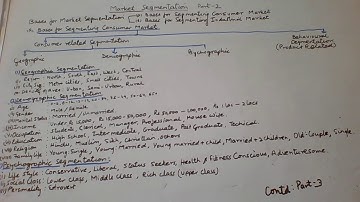 Market Segmentation Part-2
Bases for Market Segmentation → Bases for Segmenting Consumer Market
→ Bases for Segmenting Industrial Market
Bases for Segmenting Consumer Market
Consumer related Segmentation
Behavioural Segmentation
(Product Related)
Geographic
Demographic
Psychographic
Geographic Segmentation
Region: North, South, East, West, Central
City: Metro Cities, Small Cities, Towns
Urban, Semi-Urban, Rural
Demographic Segmentation
Age
Gender
Marital Status Married / Unmarried
Income: Under Rs 5,000, Rs 15,000 - 50,000, Rs 50,000 - 100,000, Rs 1 lac - 2 lacs
Occupation Student, Clerical, Manager, Professional, House wife
Education High School, Intermediate, Graduate, Post Graduate, Technical
Religion Hindu, Muslim, Sikh, Christian, others
Family life Young Single, Young Married, Young married + child, Married + 2 children, Old-couple, Single
Psychographic Segmentation:
Life Style: Conservative, Liberal, Status Seekers, Health & Fitness Conscious, Adventuresome
Social Class: Lower class, Middle class, Rich class (upper class)
Personality - Extrovert
Contd: Part-3